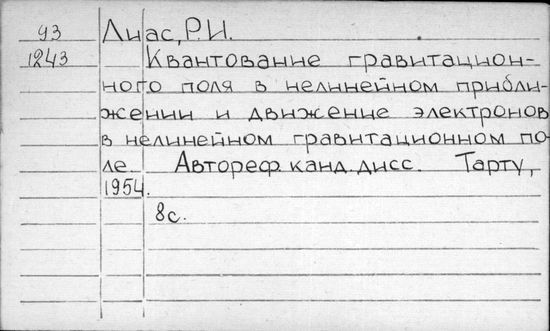 93 Лиас, Р.И.
1243 Квантование гравитацион-
ного поля в нелинейном прибли-
жении и движение электронов
в нелинейном гравитационном по-
ле. Автореф. канд. дисс. Тарту,
1954.
8с.